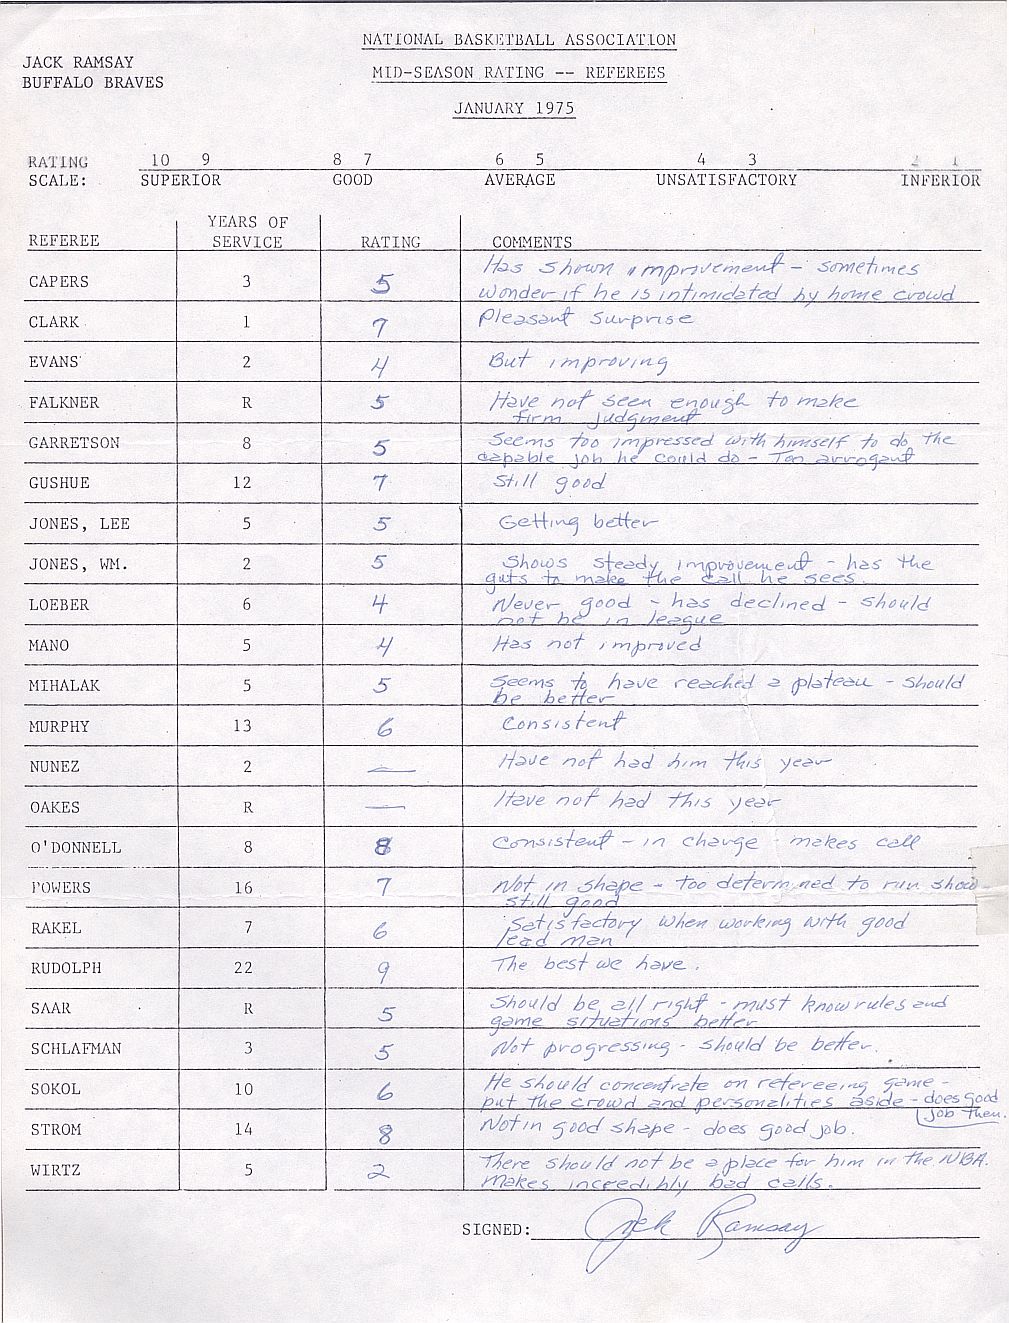 NATIONAL BASKETBALL ASSOCIATION
JACK RAMSAY
BUFFALO BRAVES
MID-SEASON RATING -- REFEREES
JANUARY 1975
RATING 10 9 8 7 6 5 4 3 2 1
SCALE: SUPERIOR GOOD AVERAGE UNSATISFACTORY INFERIOR
YEARS OF
REFEREE SERVICE RATING COMMENTS
Has shown improvement - sometimes
CAPERS 3 5
wonder if he is intimidated by home crowd
CLARK 1 7 Pleasant surprise
EVANS 2 4 But improving
FALKNER R 5 Have not seen enough to make
firm judgment
GARRETSON 8 5 Seems too impressed with himself to do the
capable job he could do - Too arrogant
GUSHUE 12 7 Still good
JONES, LEE 5 5 Getting better
JONES, WM. 2 5 Shows steady improvement - has the
guts to make the call he sees.
LOEBER 6 4 Never good - has declined - should
not be in league
MANO 5 4 Has not improved
MIHALAK 5 5 Seems to have reached a plateau - should
be better
MURPHY 13 6 Consistent
NUNEZ 2 — Have not had him this year
OAKES R — Have not had this year
O'DONNELL 8 8 Consistent - in charge - makes call
POWERS 16 7 Not in shape - too determined to run show -
still good
RAKEL 7 6 Satisfactory when working with good
lead man
RUDOLPH 22 9 The best we have.
SAAR R 5 Should be all right - must know rules and
game situations better
SCHLAFMAN 3 5 Not progressing - should be better.
SOKOL 10 6 He should concentrate on refereeing game -
put the crowd and personalities aside - does good
job then.
STROM 14 8 Not in good shape - does good job.
WIRTZ 5 2 There should not be a place for him in the NBA.
Makes incredibly bad calls.
SIGNED: Jack Ramsay